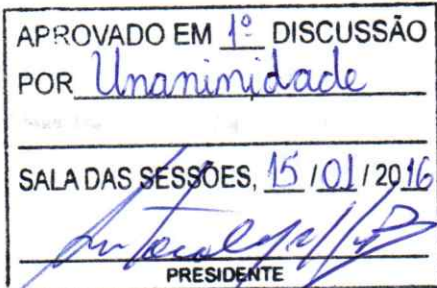 APROVADO EM 1º DISCUSSÃO
POR Unanimidade
SALA DAS SESSÕES, 15 / 01 / 2016
PRESIDENTE